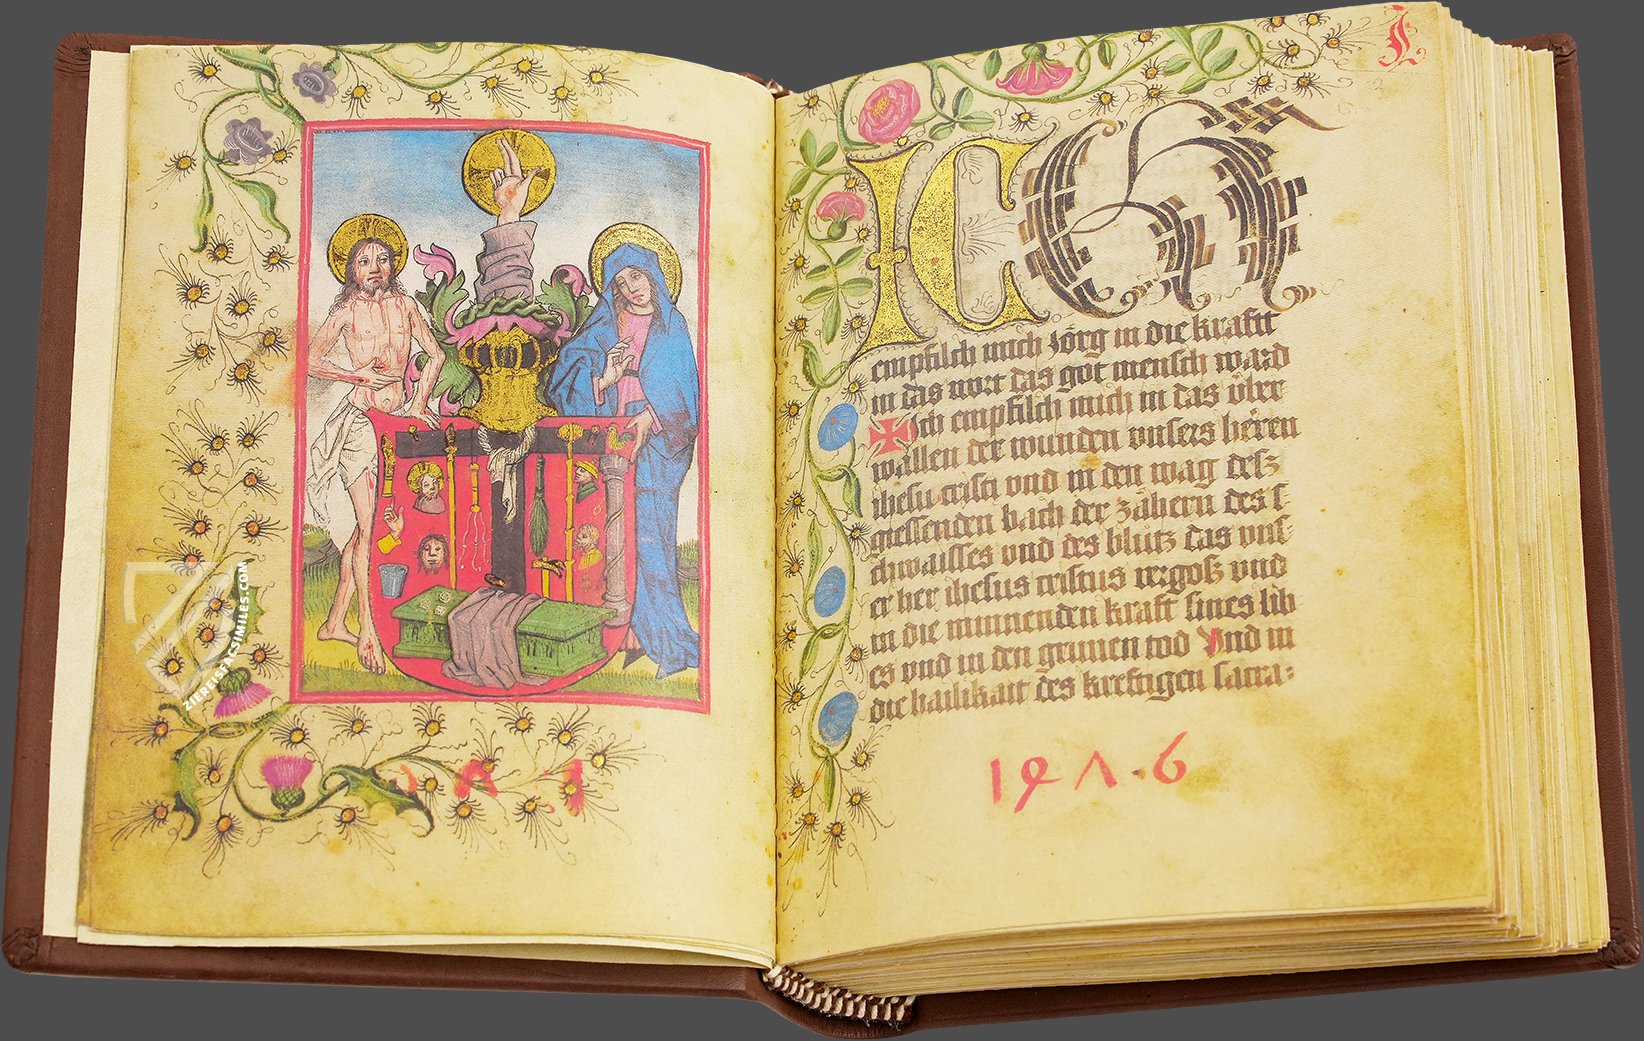 L
ICH
empfilch mich Jörg in die krafft
in das wort das got mensch ward
Ich empfilch mich in das über
wallen der wunden unsers herren
ihesu cristi vnd in den wag desz
giessenden bach der zähern des s
chwaisses vnd des blutz das vns
er her ihesus cristus vergosz vnd
in die minnenden kraft sines lib
es vnd in den grimen tod Vnd in
die hailikait des kreftigen sacra:
1486
ZIEREISFACSIMILES.COM